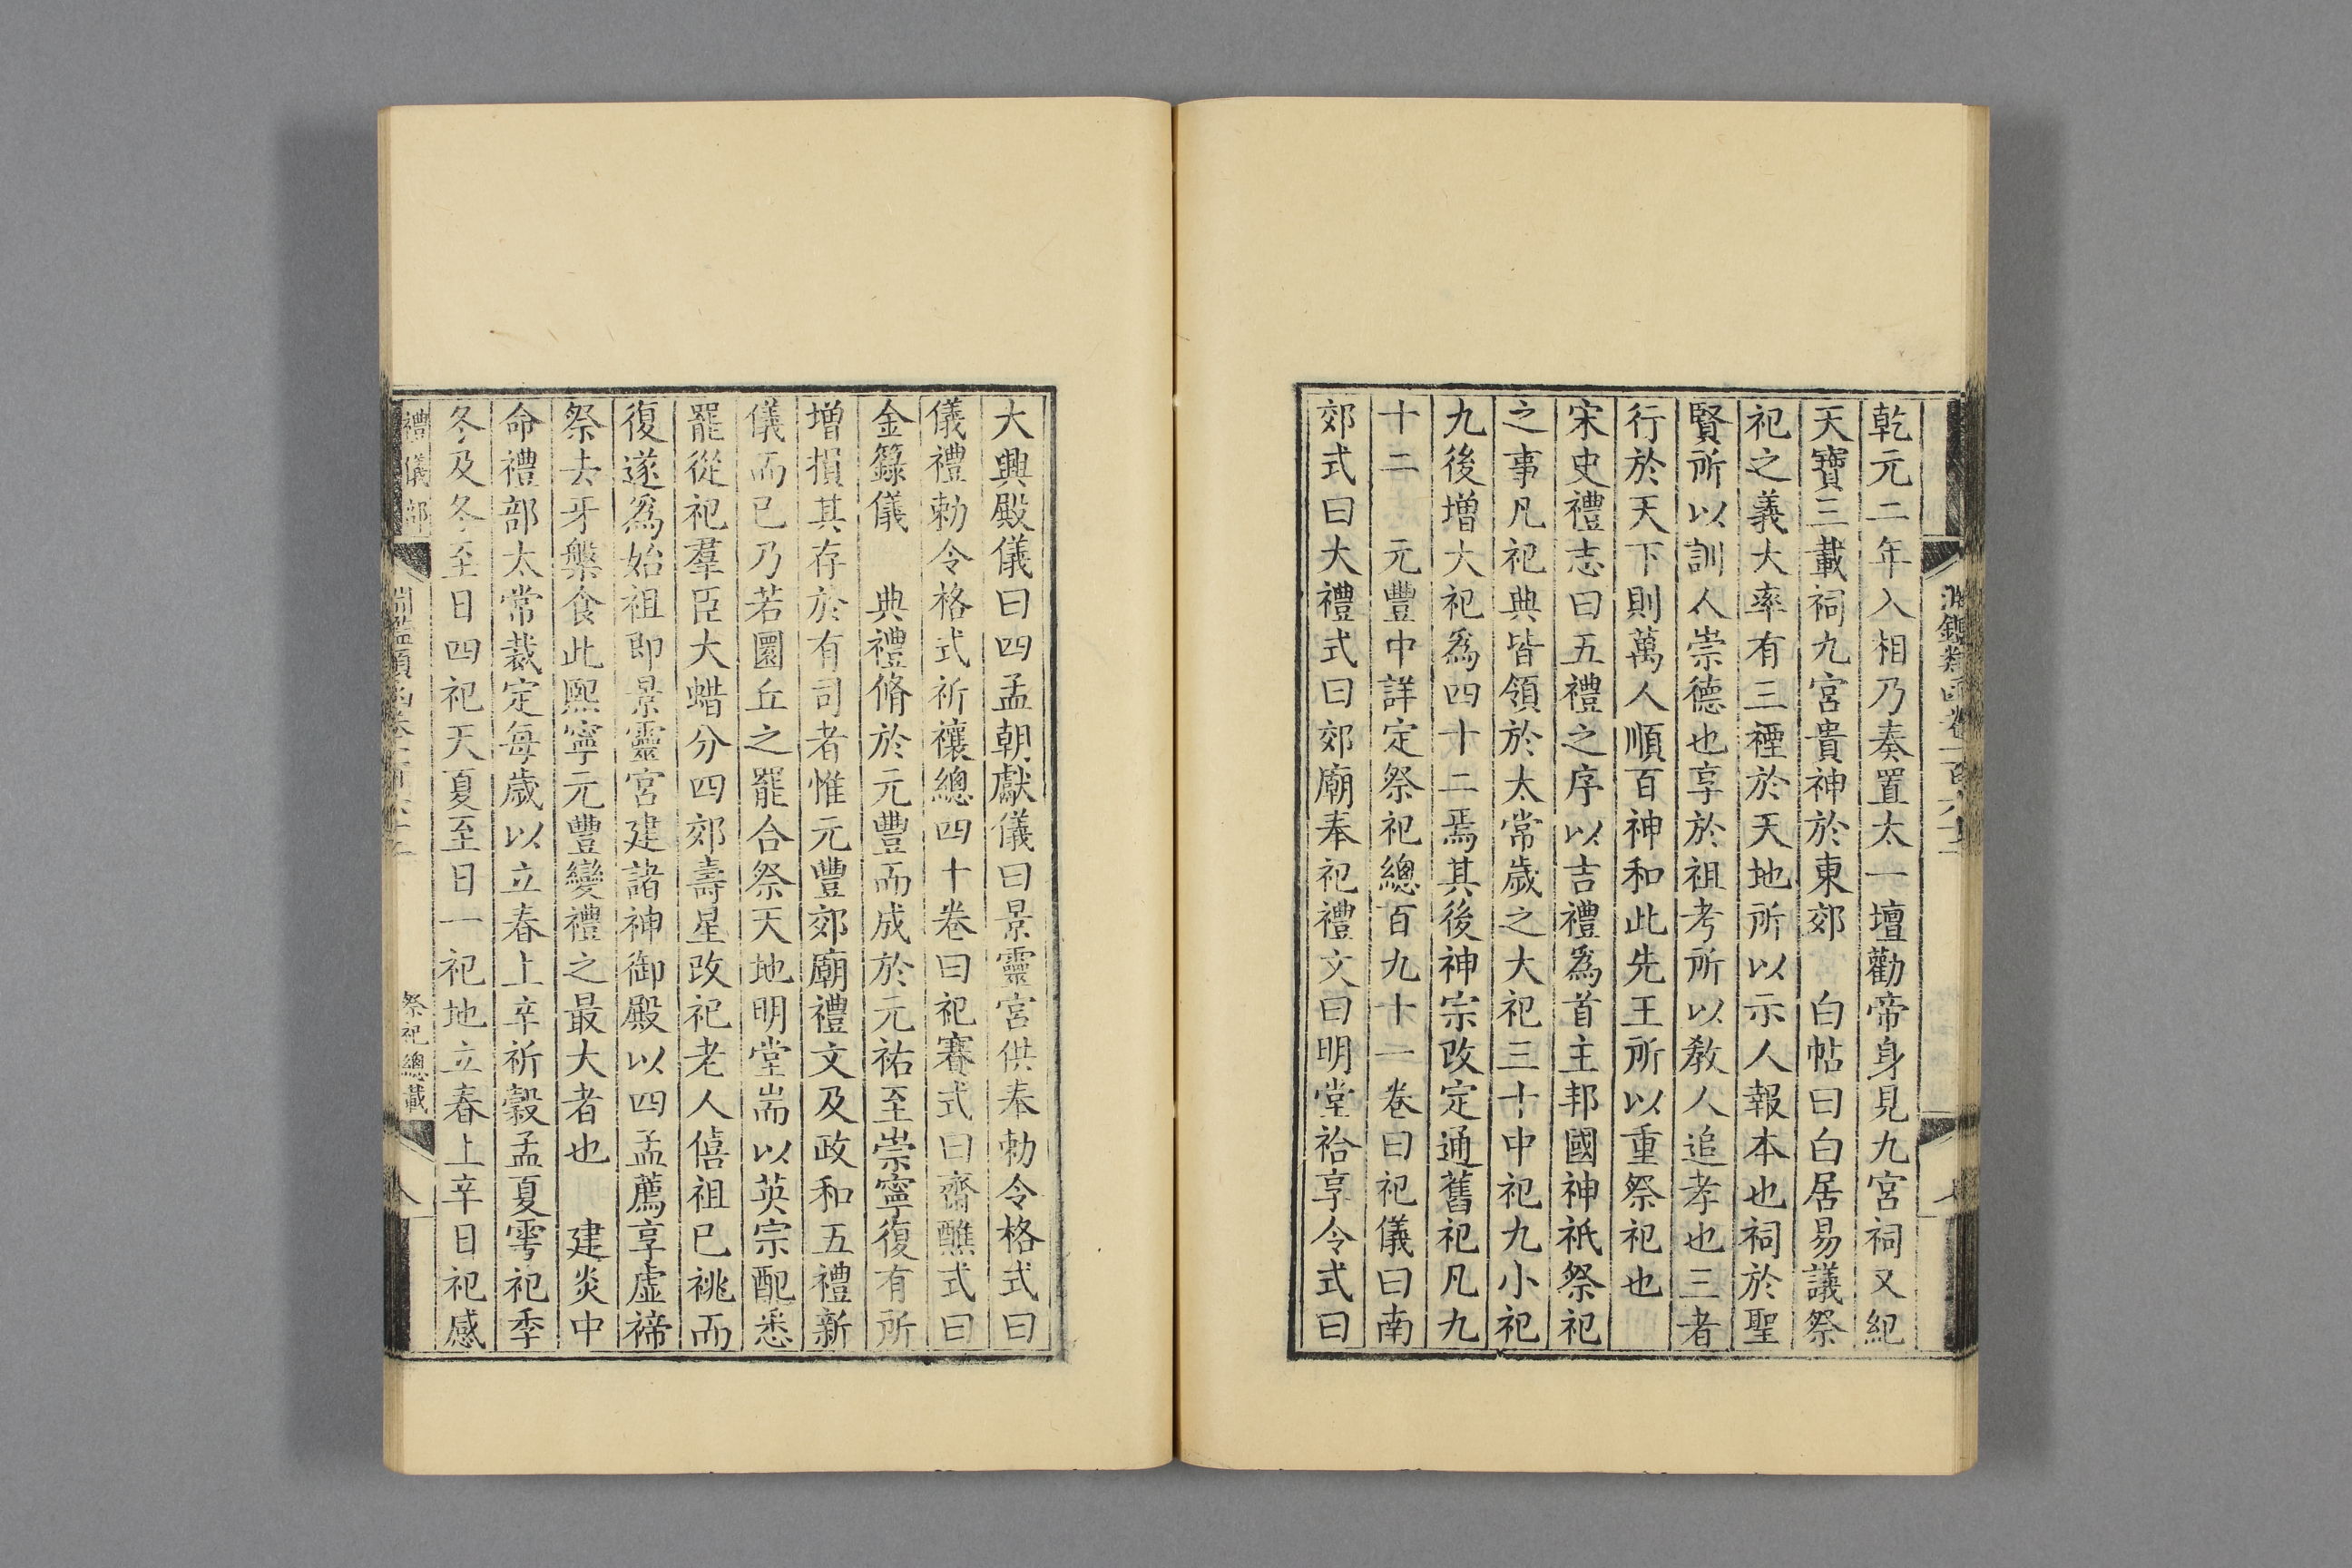 乾元二年入相乃奏置太一壇勸帝身見九宮祠又紀
天寶三載祠九宮貴神於東郊　白帖曰白居易議祭
祀之義大率有三禋於天地所以示人報本也祠於聖
賢所以訓人崇德也享於祖考所以教人追孝也三者
行於天下則萬人順百神和此先王所以重祭祀也
宋史禮志曰五禮之序以吉禮爲首主邦國神祇祭祀
之事凡祀典皆領於太常歲之大祀三十中祀九小祀
九後增大祀爲四十二焉其後神宗改定通舊祀凡九
十二　元豐中詳定祭祀總百九十一卷曰祀儀曰南
郊式曰大禮式曰郊廟奉祀禮文曰明堂祫享令式曰
大興殿儀曰四孟朝獻儀曰景靈宮供奉勅令格式曰
儀禮勅令格式祈禳總四十卷曰祀賽式曰齋醮式曰
金籙儀　典禮脩於元豐而成於元祐至崇寧復有所
增損其存於有司者惟元豐郊廟禮文及政和五禮新
儀而已乃若圜丘之罷合祭天地明堂耑以英宗配悉
罷從祀羣臣大蜡分四郊壽星改祀老人僖祖已祧而
復遂爲始祖即景靈宮建諸神御殿以四孟薦享虛禘
祭去牙槃食此熙寧元豐變禮之最大者也　建炎中
命禮部太常裁定每歲以立春上辛祈穀孟夏雩祀季
冬及冬至日四祀天夏至日一祀地立春上辛日祀感
禮儀部
祭祀總載
八